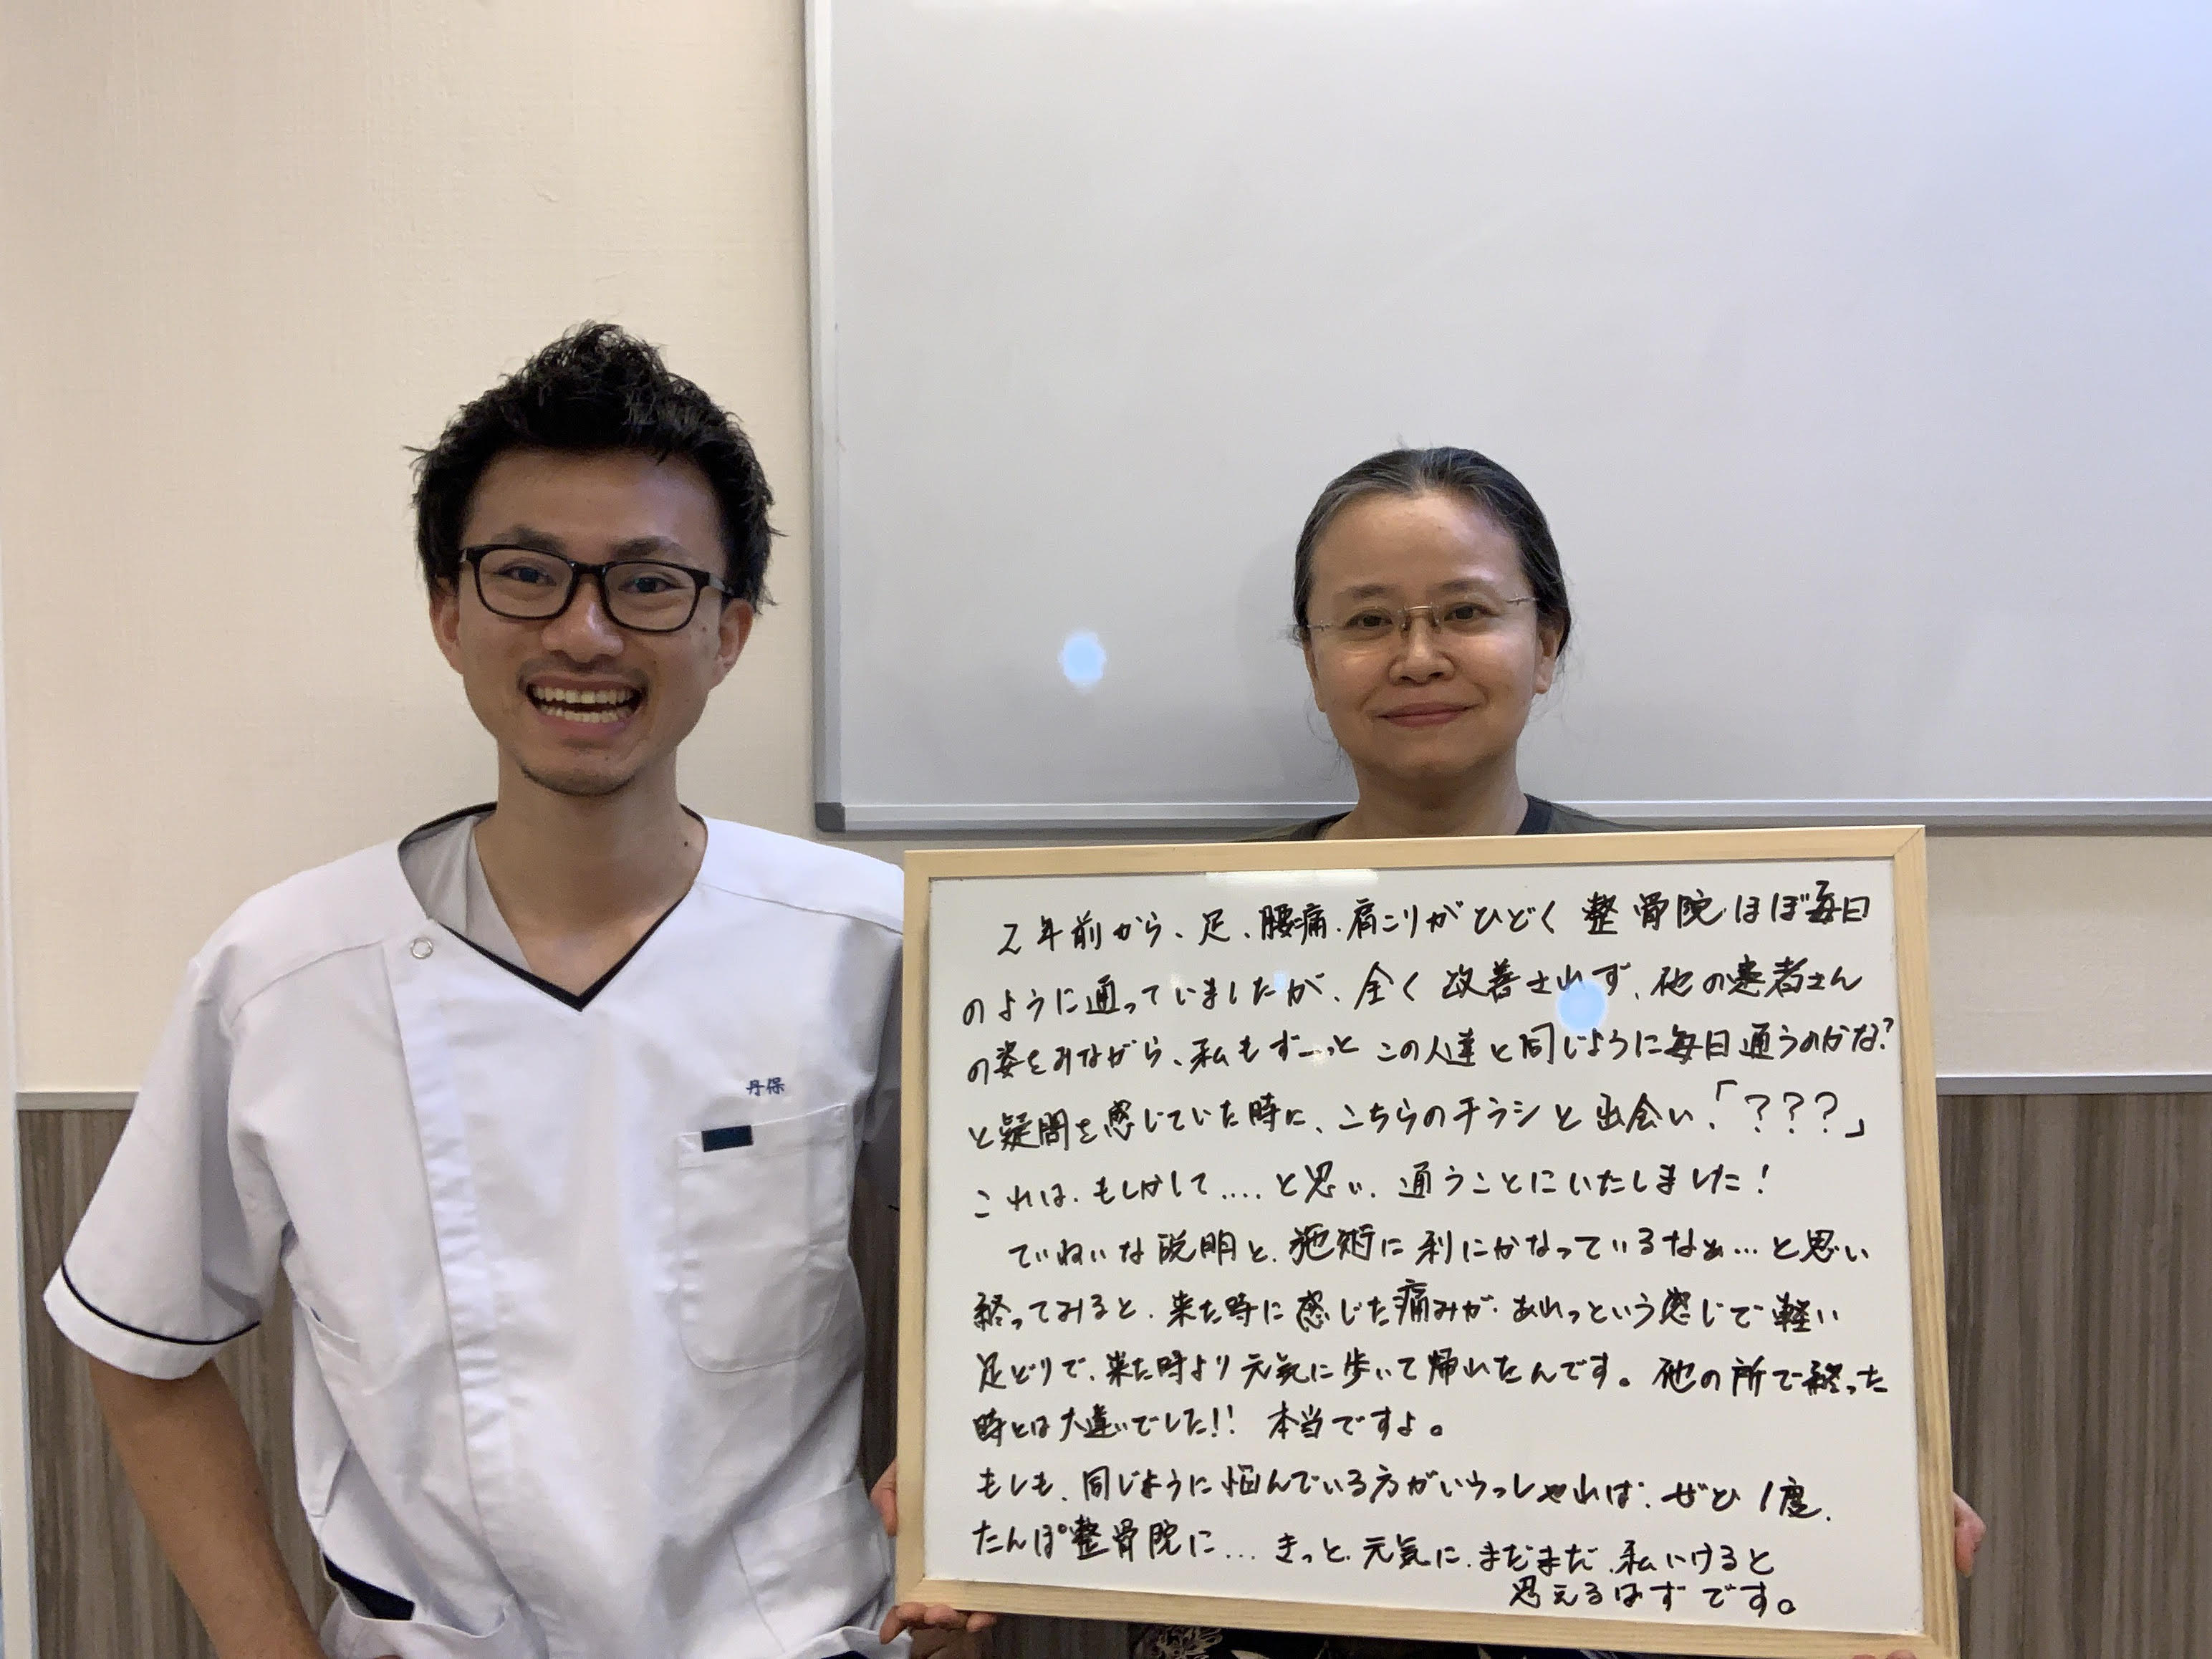 丹保
2年前から、足、腰痛、肩こりがひどく整骨院ほぼ毎日
のように通っていましたが、全く改善されず、他の患者さん
の姿をみながら、私もずーっとこの人達と同じように毎日通うのかな?
と疑問を感じていた時に、こちらのチラシと出会い、「???」
これは、もしかして....と思い、通うことにいたしました!
ていねいな説明と、施術に利にかなっているなぁ...と思い
終ってみると、来た時に感じた痛みが、あれっという感じで軽い
足どりで、来た時より元気に歩いて帰れたんです。他の所で終った
時とは大違いでした!! 本当ですよ。
もしも、同じように悩んでいる方がいらっしゃれば、ぜひ1度、
たんぽ整骨院に...きっと、元気に、まだまだ、私いけると
思えるはずです。